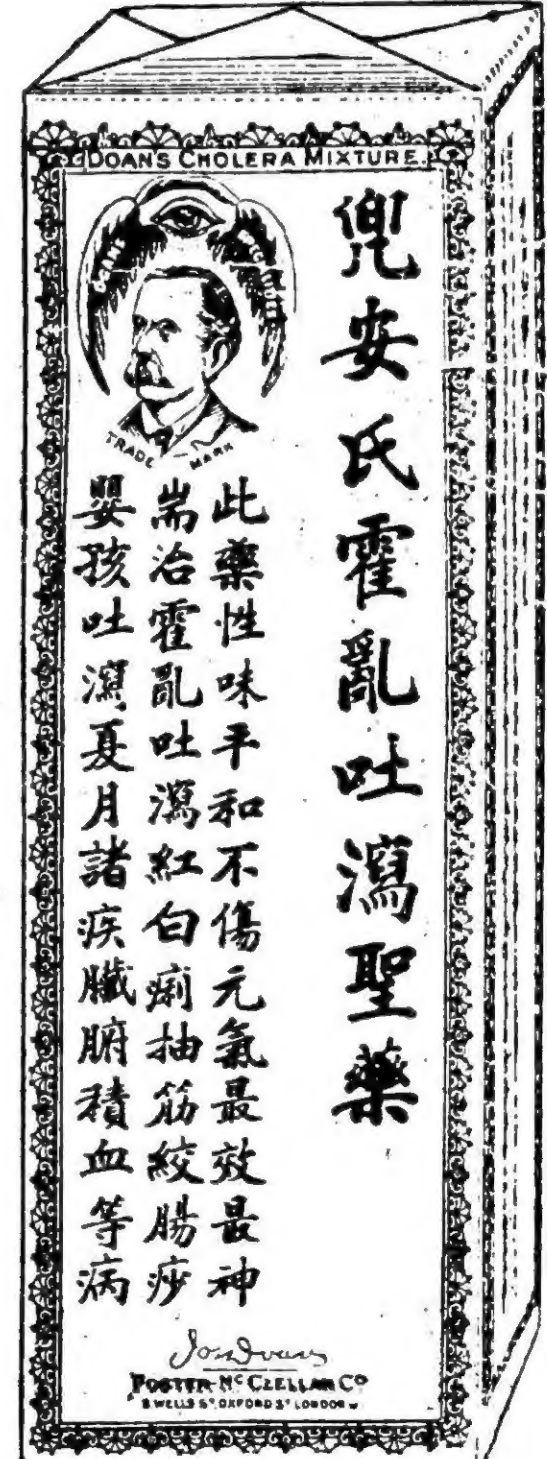 DOAN'S CHOLERA MIXTURE.
兜安氏霍亂吐瀉聖藥
DOANS
TRADE MARK
此藥性味平和不傷元氣最效最神
耑治霍亂吐瀉紅白痢抽筋絞腸痧
嬰孩吐瀉夏月諸疾臟腑積血等病
Jas Doan
FOSTER-McCLELLAN Co
8 WELLS ST OXFORD ST LONDON W